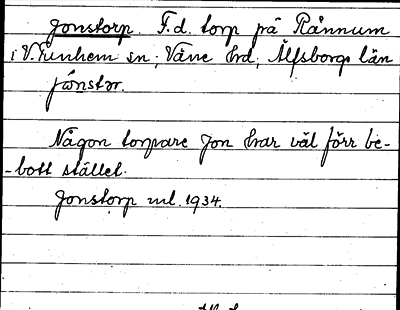 Jonstorp. F.d. torp på Rånnum
i V. Tunhem sn; Väne hrd; Älfsborgs län
jónstər.
Någon torpare Jon har väl förr be-
-bott stället.
Jonstorp ml. 1934.